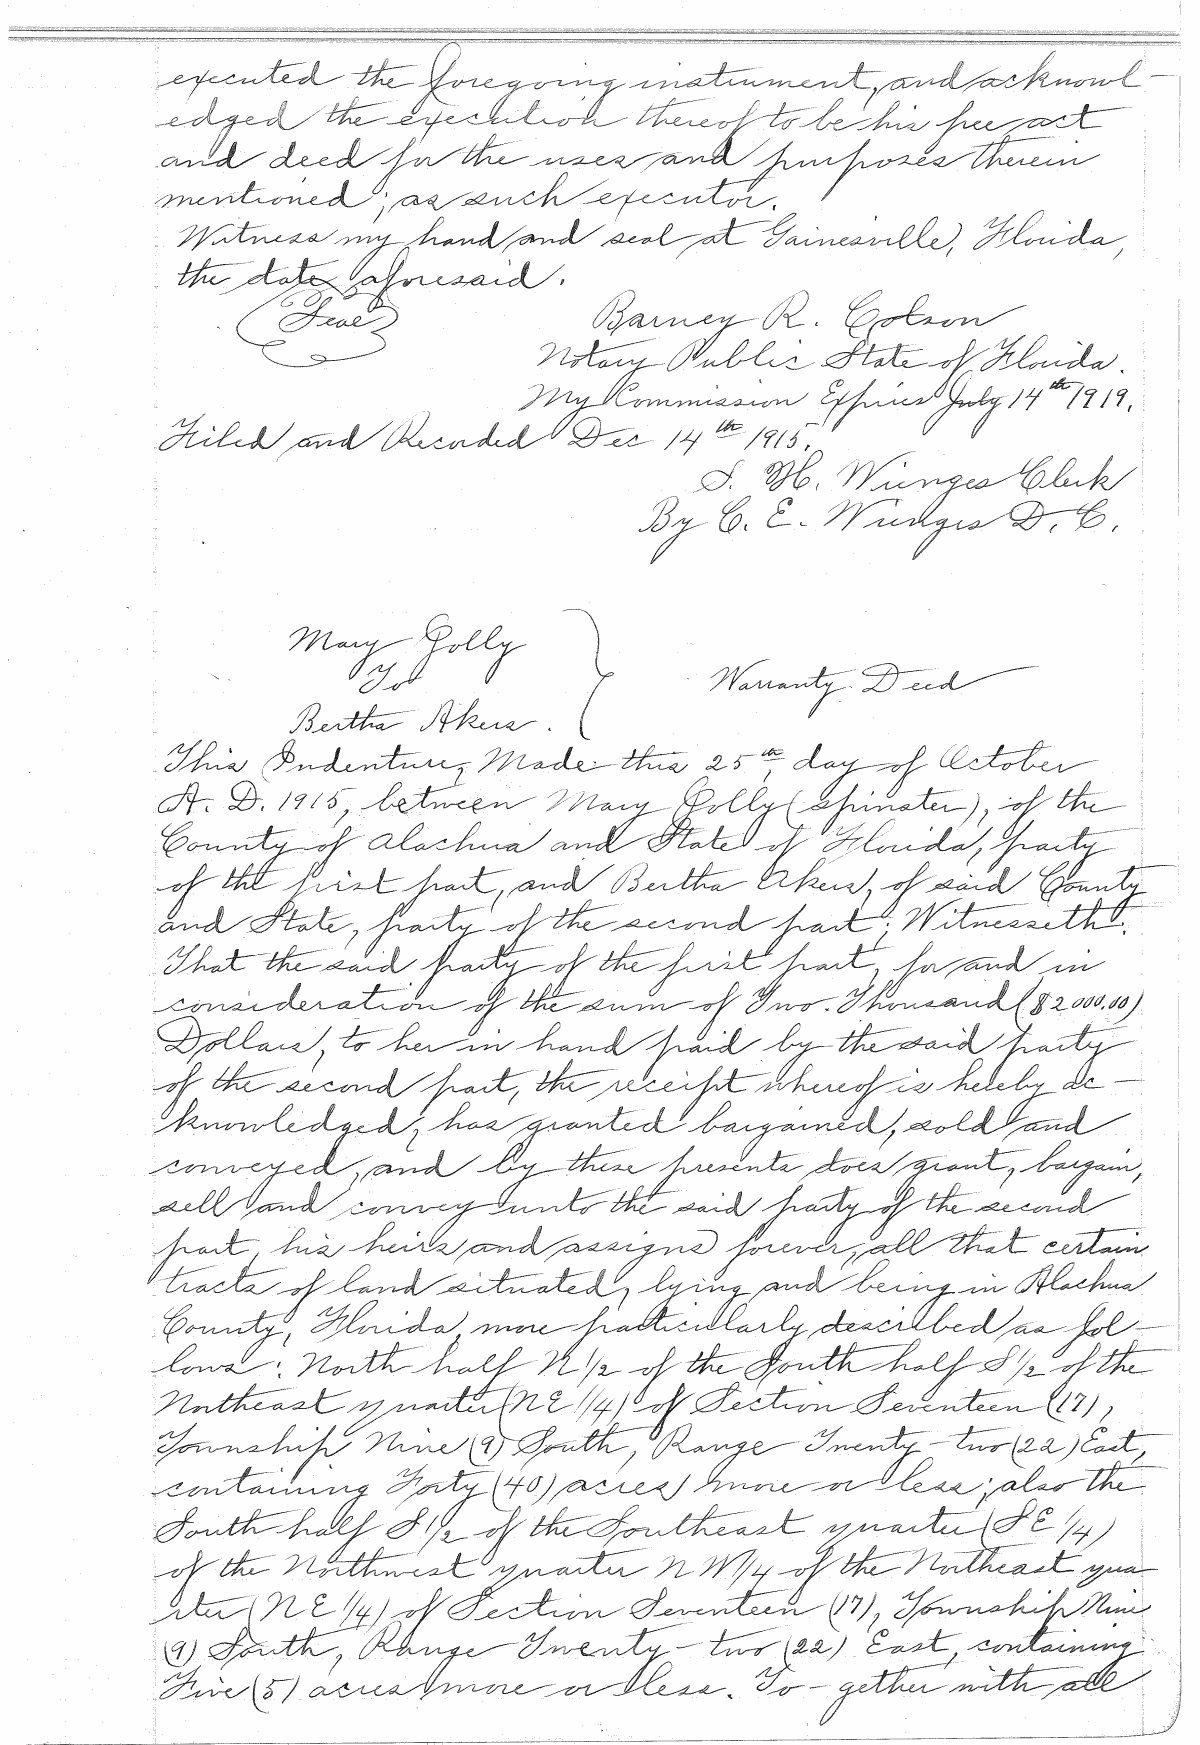 executed the foregoing instrument, and acknowl-
edged the execution thereof to be his free act
and deed for the uses and purposes therein
mentioned; as such executor.
Witness my hand and seal at Gainesville, Florida,
the date aforesaid.
Seal
Barney R. Colson
Notary Public State of Florida.
My Commission Expires July 14th 1919.
Filed and Recorded Dec 14th 1915.
S. H. Wienges Clerk
By C. E. Wienges D. C.
Mary Polly
To
Bertha Akers.
Warranty Deed
This Indenture, Made this 25th, day of October
A. D. 1915, between Mary Polly (spinster), of the
County of Alachua and State of Florida, party
of the first part, and Bertha Akers, of said County
and State, party of the second part; Witnesseth:
That the said party of the first part, for and in
consideration of the sum of Two Thousand ($2000.00)
Dollars, to her in hand paid by the said party
of the second part, the receipt whereof is hereby ac-
knowledged, has granted bargained, sold and
conveyed, and by these presents does grant, bargain,
sell and convey unto the said party of the second
part, his heirs and assigns forever, all that certain
tracts of land situated, lying and being in Alachua
County, Florida, more particularly described as fol-
lows: North half N 1/2 of the South half S 1/2 of the
Northeast quarter (NE 1/4) of Section Seventeen (17),
Township Nine (9) South, Range Twenty-two (22) East,
containing Forty (40) acres more or less; also the
South half S 1/2 of the Southeast quarter (SE 1/4)
of the Northwest quarter NW1/4 of the Northeast qua
rter (NE 1/4) of Section Seventeen (17), Township Nine
(9) South, Range Twenty-two (22) East, containing
Five (5) acres more or less. To-gether with all